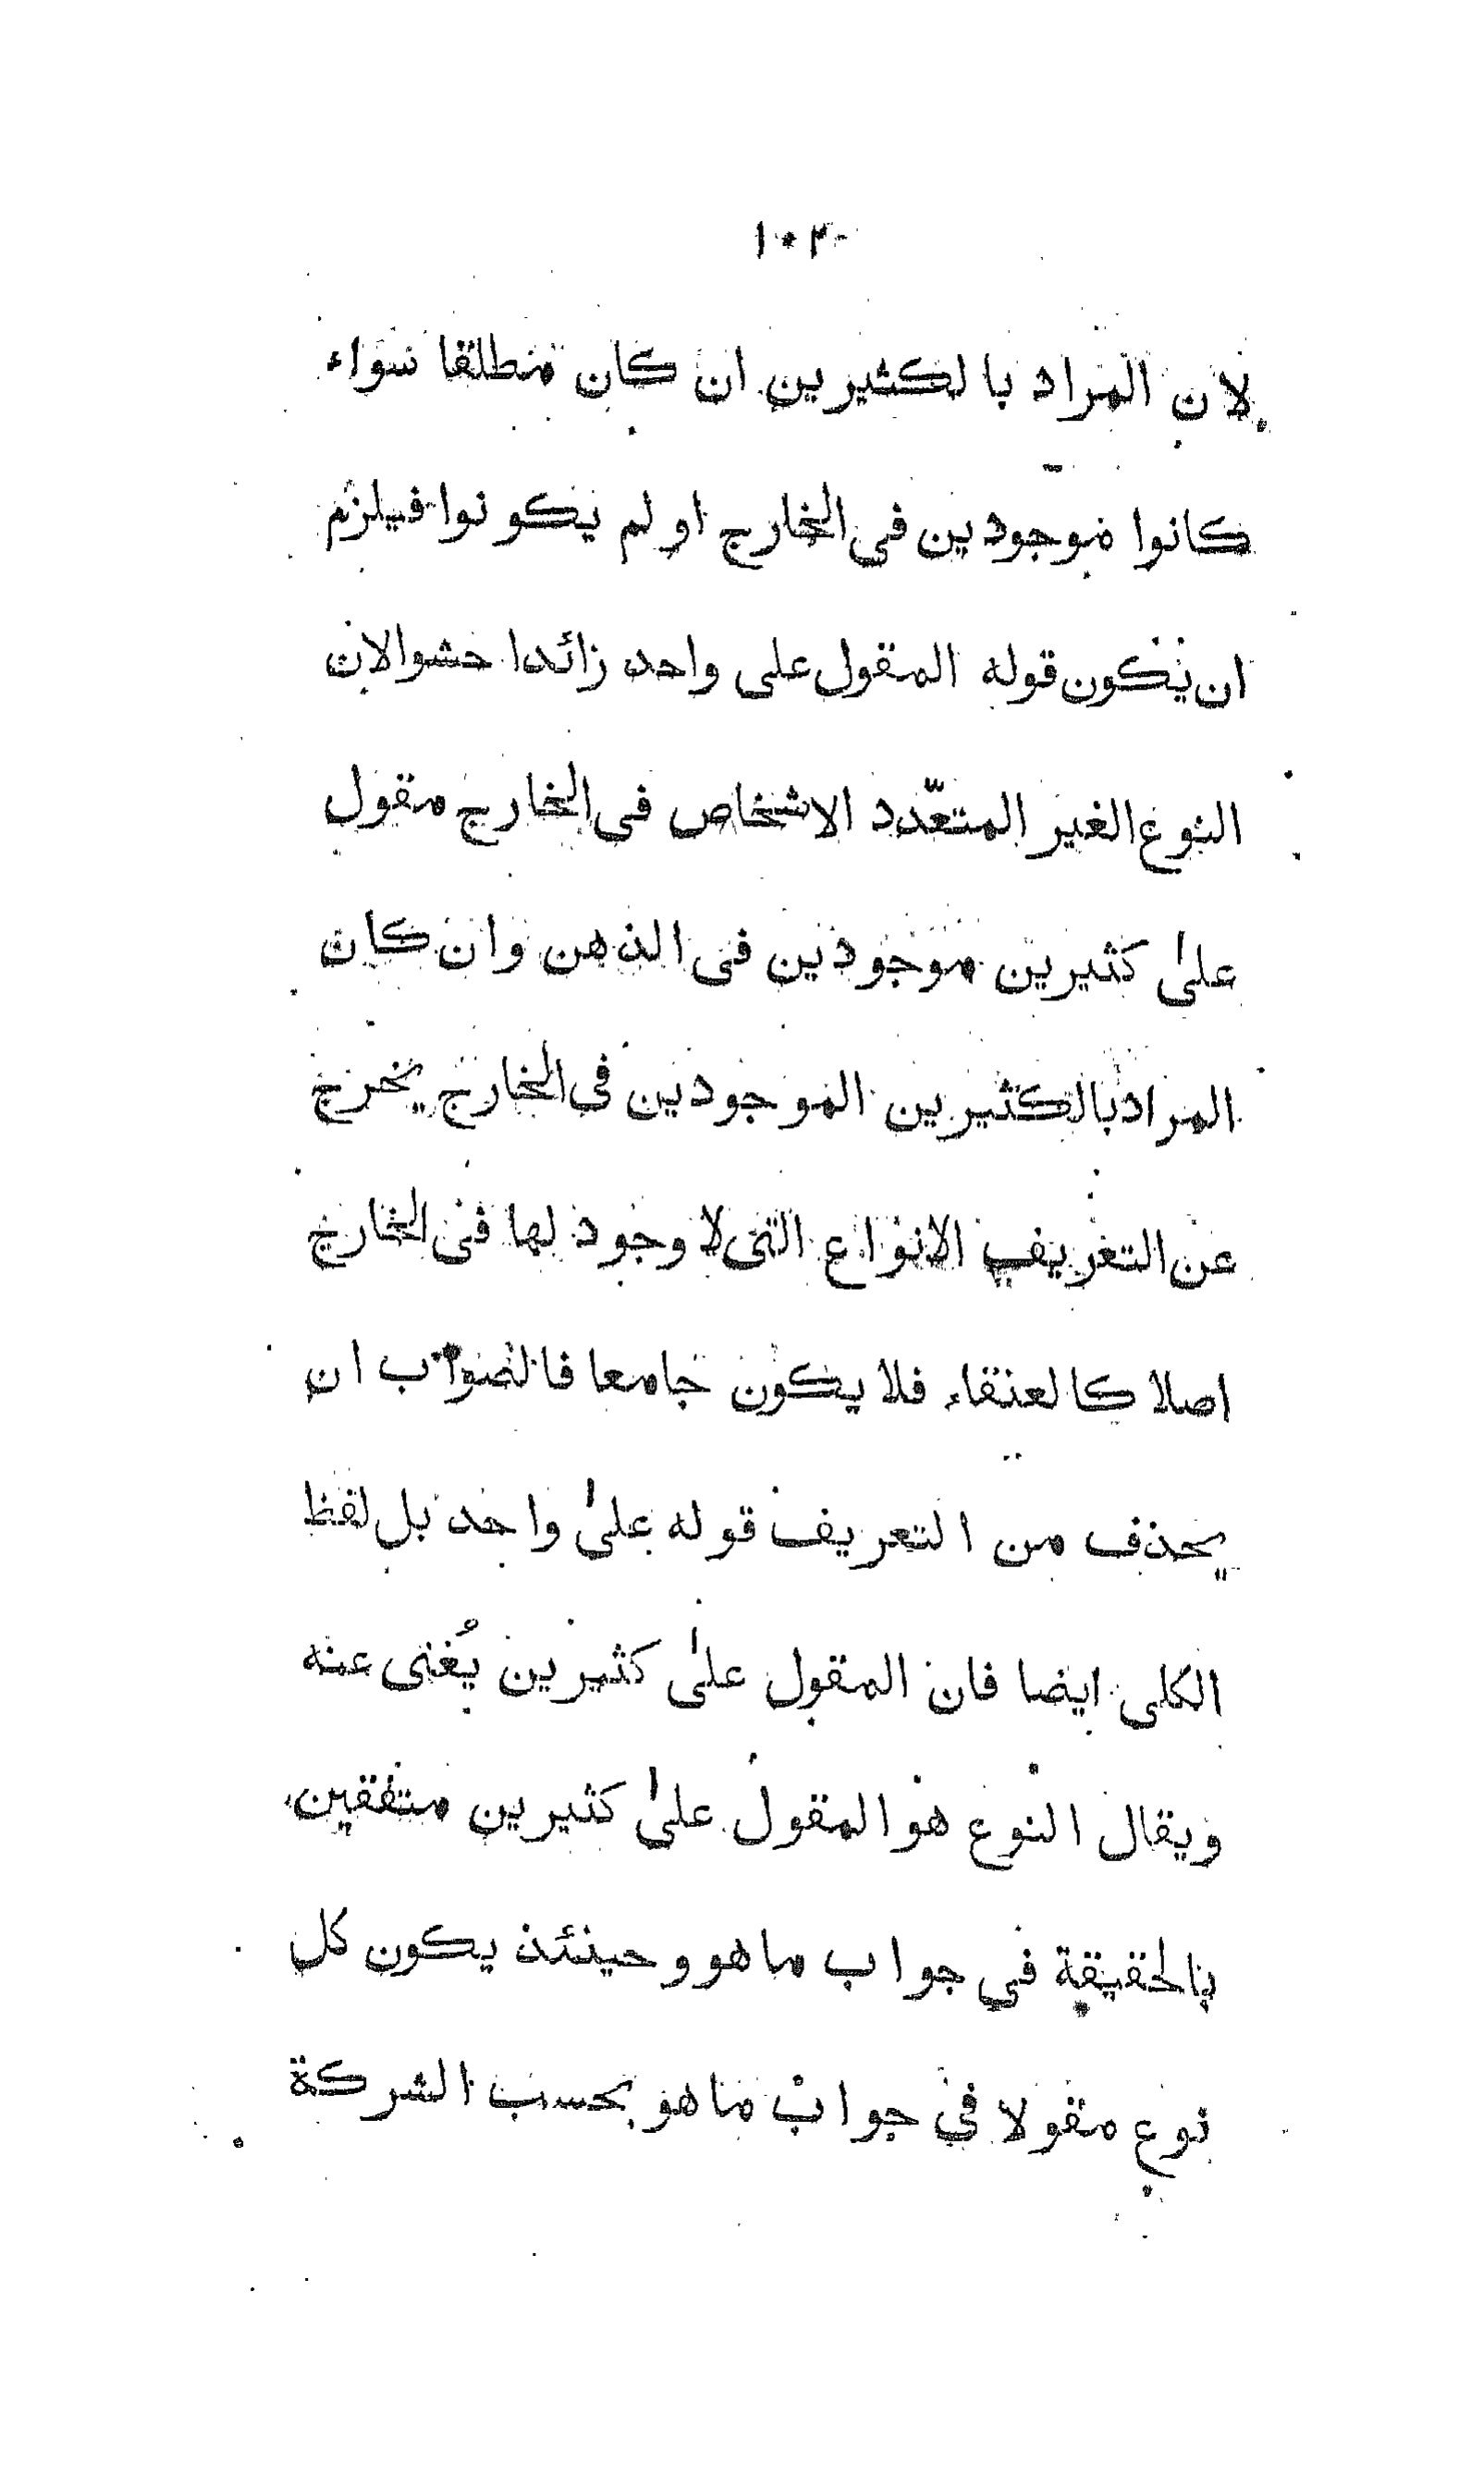 ١٠٢
لان المراد بالكثيرين ان كان مطلقا سواء
كانوا موجودين فى الخارج او لم يكونوا فيلزم
ان يكون قوله المقول على واحد زائدا حشوا لان
النوع الغير المتعّدد الاشخاص فى الخارج مقول
علىٰ كثيرين موجودين فى الذهن وان كان
المراد بالكثيرين الموجودين فى الخارج يخرج
عن التعريف الانواع التى لا وجود لها فى الخارج
اصلا كالعنقاء فلا يكون جامعا فالصواب ان
يحذف من التعريف قوله علىٰ واحد بل لفظ
الكلى ايضا فان المقول علىٰ كثيرين يُغنى عنه
ويقال النوع هو المقول علىٰ كثيرين متفقين
بالحقيقة في جواب ما هو وحينئذ يكون كل
نوع مقولا في جواب ما هو بحسب الشركة